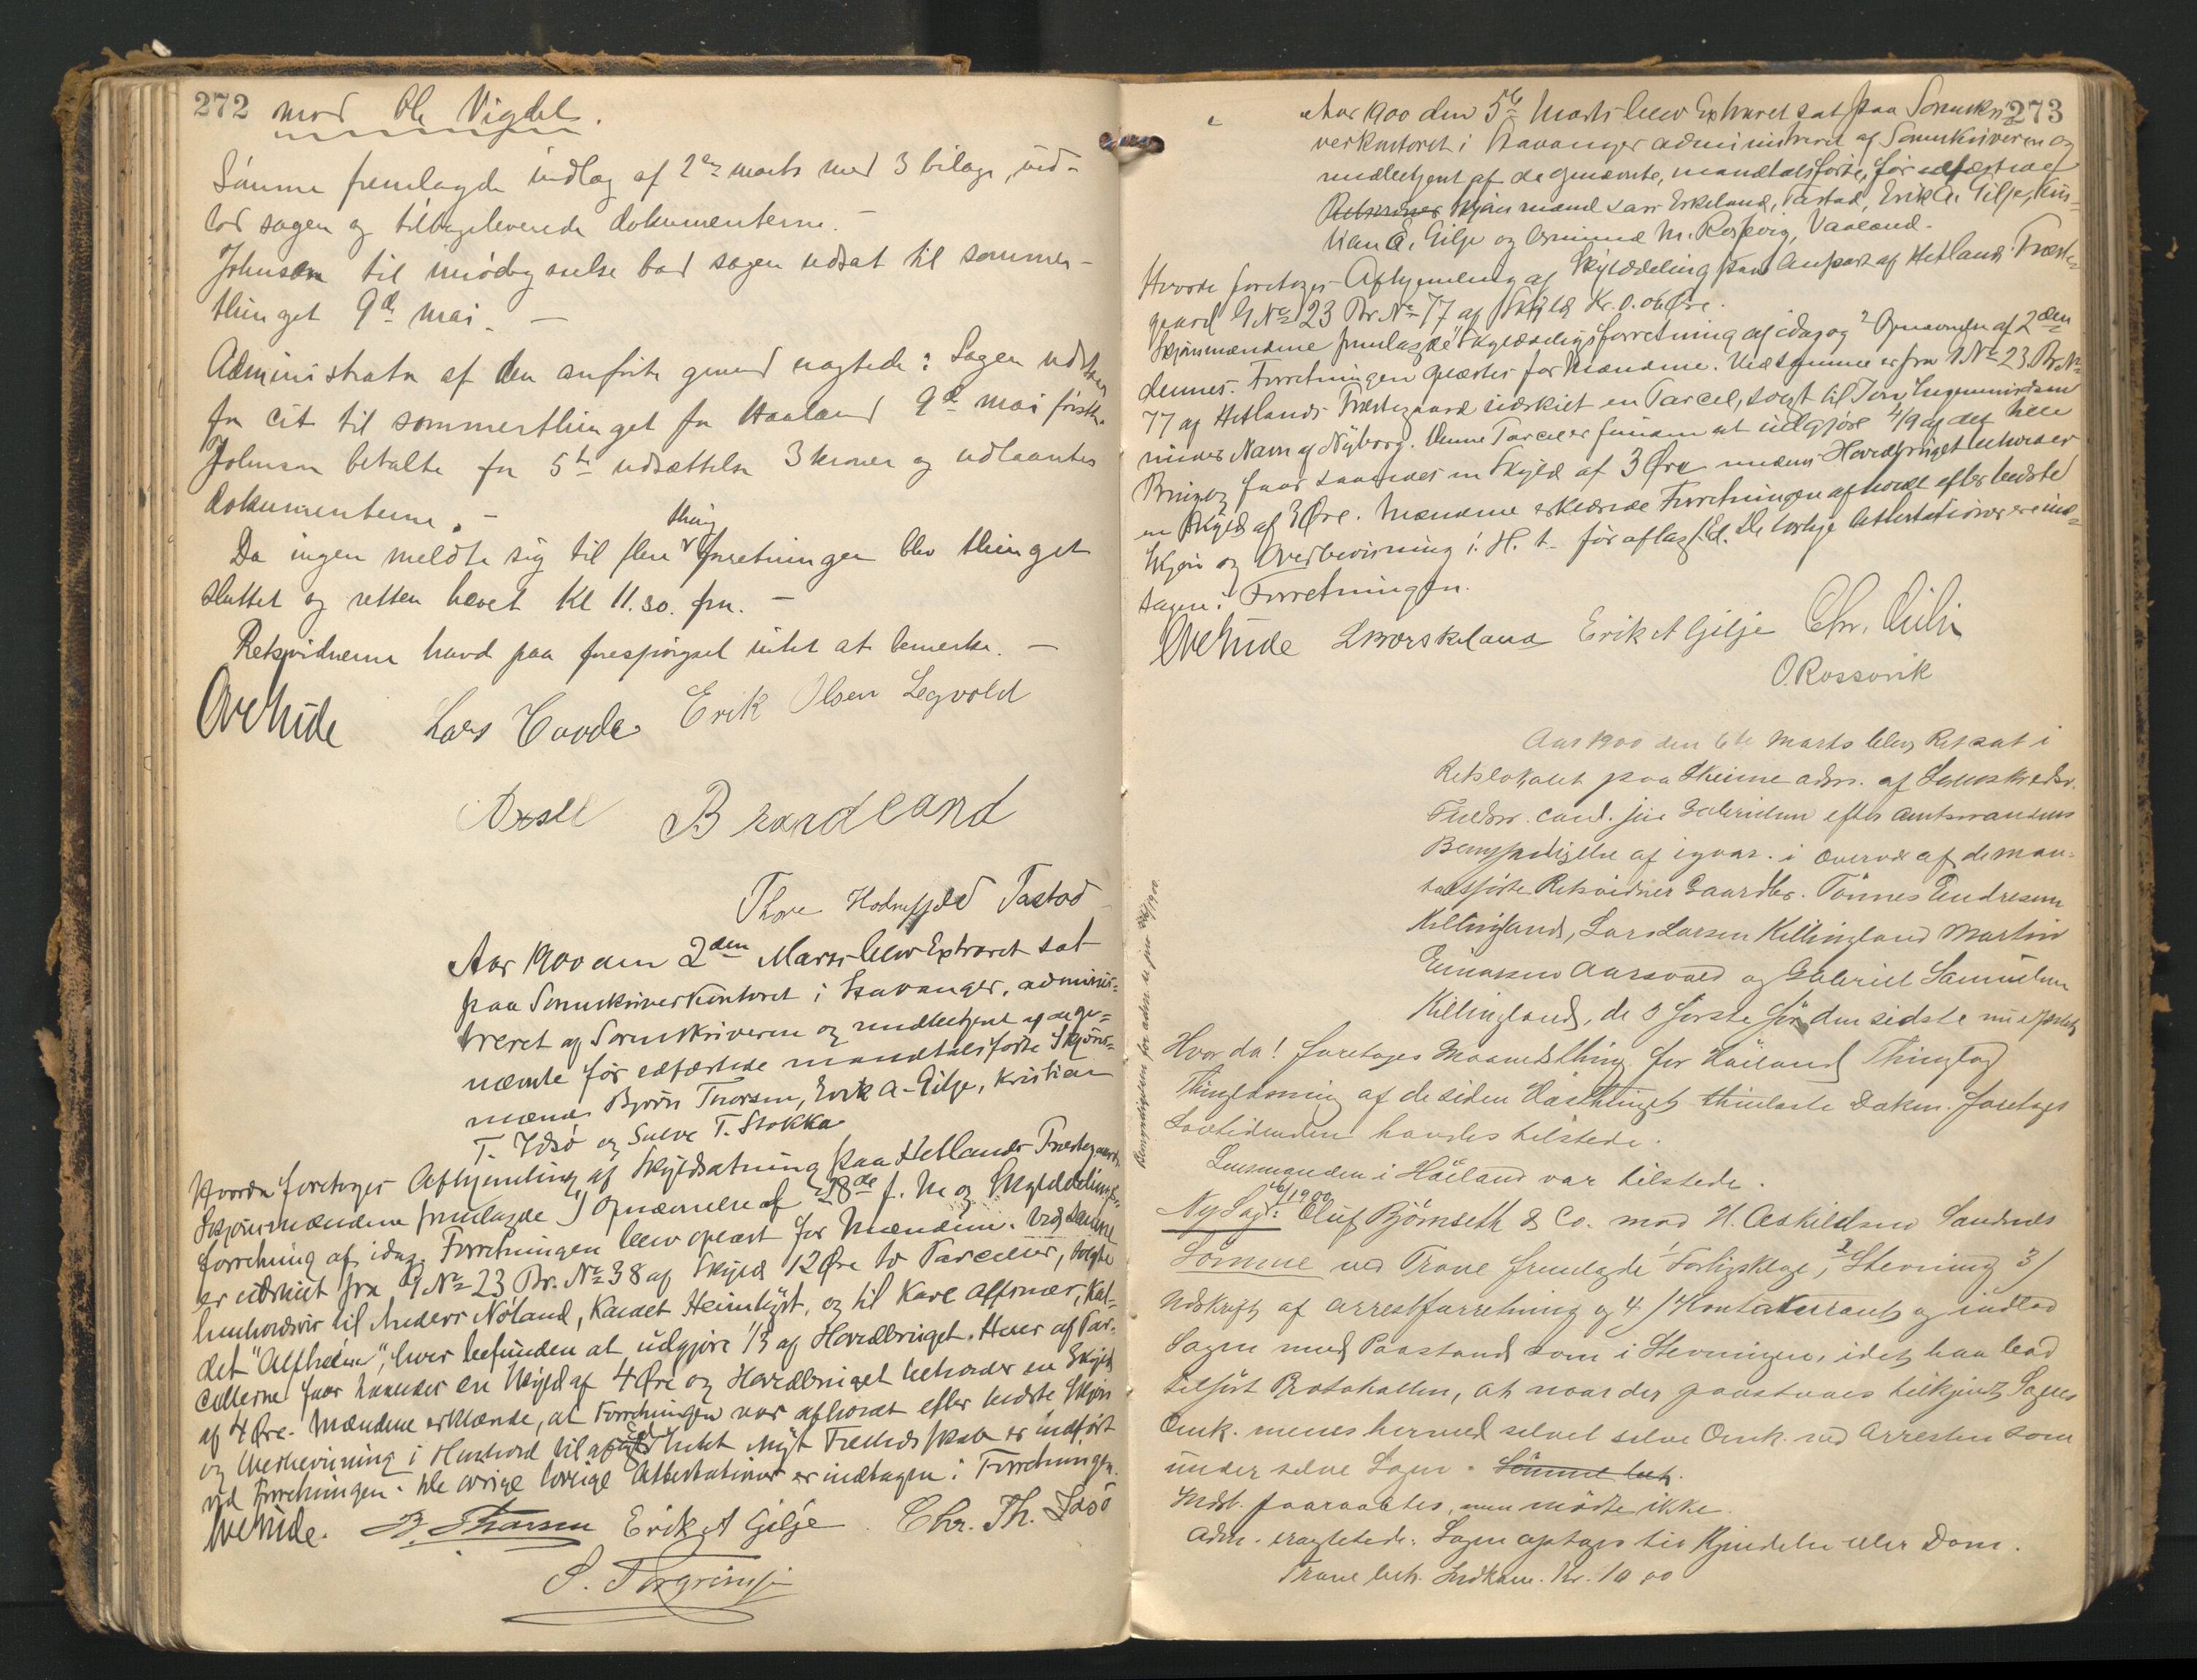 272 mod Ole Vigdel.
Samme fremlagde indlæg af 2den marts med 3 bilage, ind-
lod sagen og tilbageleverede dokumenterne. -
Johnsen til imødegaaelse bad sagen udsat til sommer-
thinget 9de mai. -
Administrator af den anførte grund eragtede: Sagen udsættes
for cit til sommerthinget for Haaland 9de mai førstk.
Johnsen betalte for 5te udsættelse 3 kroner og udlaantes
dokumenterne. -
Da ingen meldte sig til flere thingforretninger blev thinget
sluttet og retten hævet Kl 11.30. fm. -
Retsvidnerne havde paa forespørgsel intet at bemerke. -
Lars Erik Olsen Legvold
Axsel Brandeland
Thore Hodnefjeld Tastad
Aar 1900 den 2den Marts blev Extraret sat
paa Sorenskriverkontoret i Stavanger, adminis-
treret af Sorenskriveren og medbetjent af de op-
nævnte før edfæstede mandtalsførte Skjøns-
mænd Bjørn Thorsen, Erik A. Gilje, Kristian
T. Idsø og Sulve T. Stokka
Hvorda foretoges Afhjemling af Skyldsætning paa Hetlands Præstegaard.
Skjønsmændene fremlagde 1) Opnævnelse af 28de f. M. og Skylddelings-
forretning af idag. Forretningen blev oplæst for Mændene. Ved samme
er udskilt fra G No 23 Br. No 38 af Skyld 12 Øre to Parceller, solgte
henholdsvis til Anders Nøland, kaldet Heimlyst, og til Kare Alfsnæs, kal-
det "Alfheim", hver befunden at udgjøre 1/3 af Hovedbruget. Hver af Par-
cellerne faar saaledes en Skyld af 4 Øre og Hovedbruget beholder en Skyld
af 4 Øre. Mændene erklærede, at Forretningen var afholdt efter bedste Skjøn
og Overbevisning i Henhold til aflagt Ed. Intet nyt Fælledsskab er indført
ved Forretningen. De øvrige lovlige Attestationer er indtagne i Forretningen.
B. Thorsen Erik A Gilje Chr. Th. Idsø
S. Torgrimsen
273
Aar 1900 den 5te Marts blev Extraret sat paa Sorenskri-
verkontoret i Stavanger administreret af Sorenskriveren og
medbetjent af de opnævnte, mandtalsførte, før edfæstede
Retsvidner Skjønsmænd Lars Erkeland, Tastad, Erik A. Gilje, Kris-
tian E. Gilje og Osmund M. Rossevig, Vaaland.
Hvorda foretoges Afhjemling af Skylddeling paa Anpart af Hetlands Præste-
gaard G No 23 Br No 77 af Skyld Kr. 0.06 Øre.
Skjønsmændene fremlagde 1 Skylddelingsforretning af idag og 2 Opnævnelse af 2den
dennes. Forretningen oplæstes for Mændene. Ved samme er fra G No 23 Br No
77 af Hetlands Præstegaard udskilt en Parcel, solgt til Tore Ingemundsen
under Navn af Nyborg. Denne Parcel er funden at udgjøre 4/9 af det hele
Brug og faar saaledes en Skyld af 3 Øre medens Hovedbruget beholder
en Skyld af 3 Øre. Mændene erklærede Forretningen afholdt efter bedste
Skjøn og Overbevisning i H. t. før aflagt Ed. De lovlige Attestationer ere ind-
tagne i Forretningen.
Erik A Gilje Chr. Gilje
O. Rossavik
Aar 1900 den 6te Marts blev Ret sat i
Retslokalet paa Skeime adm. af Sorenskriver
cand. jur Gabrielsen efter Amtmandens
Bemyndigelse af i overvær af de man-
talsførte Retsvidner Gaardbr. Tønnes Endresen
Killingland, Lars Larsen Killingland Martin
Aarsvold og Gabriel Samuelsen
Killingland, de 3 første før den sidste nu edfæstet
Hvorda! foretoges Maanedsthing for Høiland Thinglag
Thinglæsning af de siden Høstthinget thinleste Dokm. foretoges
Lovtidenden havdes tilstede.
Lensmanden i Høiland var tilstede.
Ny Sag: 6/1900 Oluf Bjørnseth & Co. mod H. Aeskildsen Sandnes
Samme ved Trane fremlagde 1 Forligsklage, 2 Stevning 3/
Udskrift af arrestforretning og 4/ Kontokurant og indlod
Sagen med Paastand som i Stevningen, idet han bad
tilført Protokollen, at naar der paastaaes tilkjendt Sagens
Omk. menes hermed saavel selve Omk. ved Arresten som
under selve Sagen. Samme bet.
Indst. paaraabtes, men mødte ikke.
Adm. eragtede: Sagen optages til Kjendelse eller Dom.
Trane bet. Indkom. Kr. 10 00